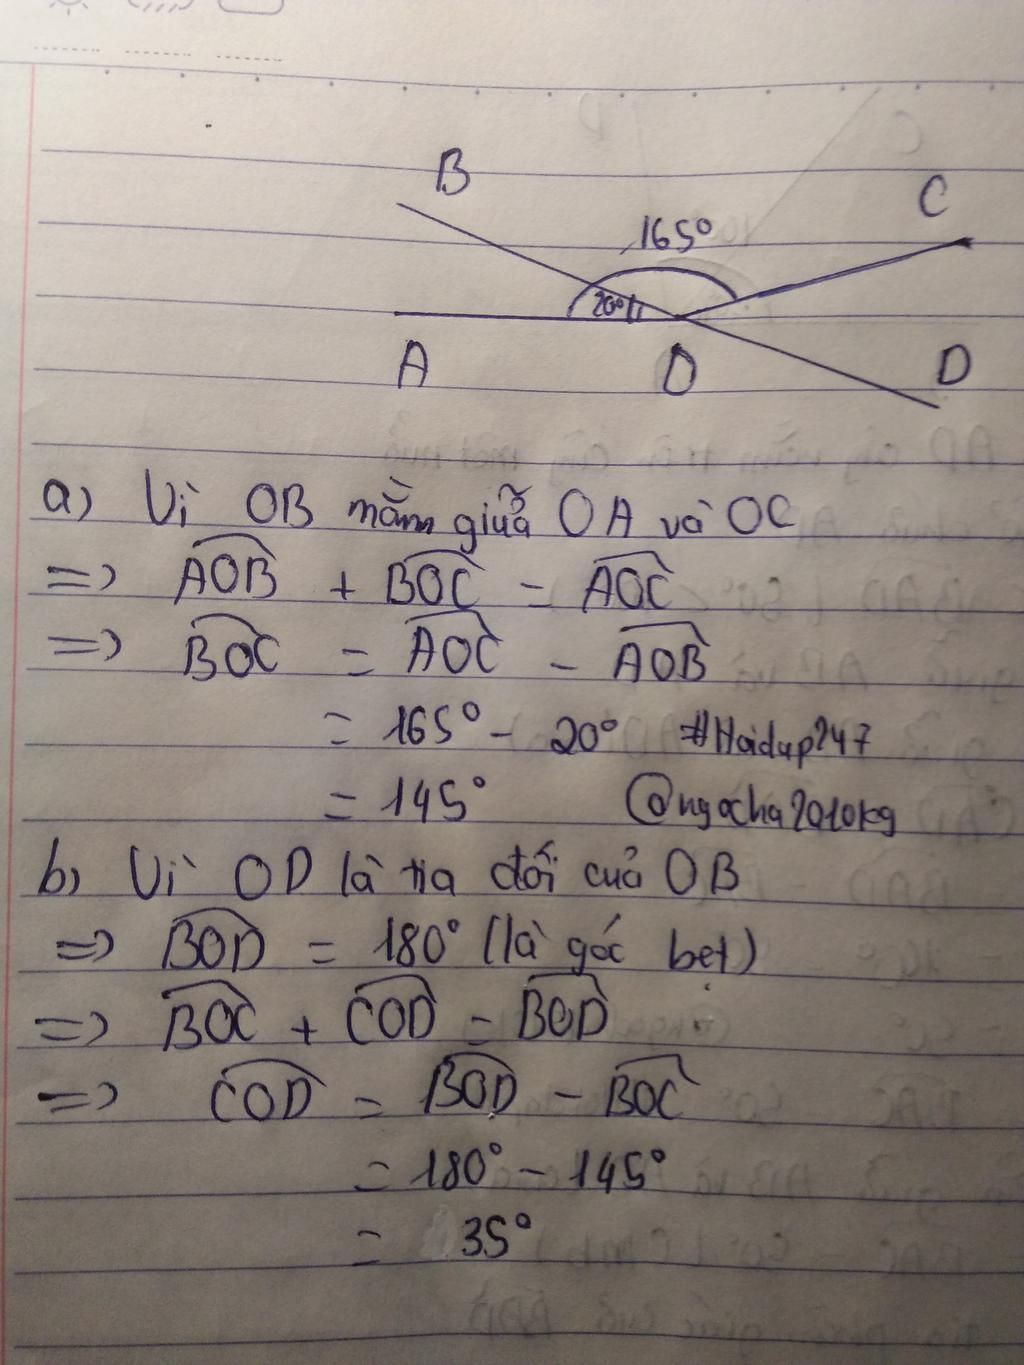 B
C
165°
20°
A
O
D
a) Vì OB nằm giữa OA và OC
=> AOB + BOC = AOC
=> BOC = AOC - AOB
= 165° - 20° #Hoidap247
= 145° @ngocha2010kg
b) Vì OD là tia đối của OB
=> BOD = 180° (là góc bẹt)
=> BOC + COD = BOD
=> COD = BOD - BOC
= 180° - 145°
= 35°